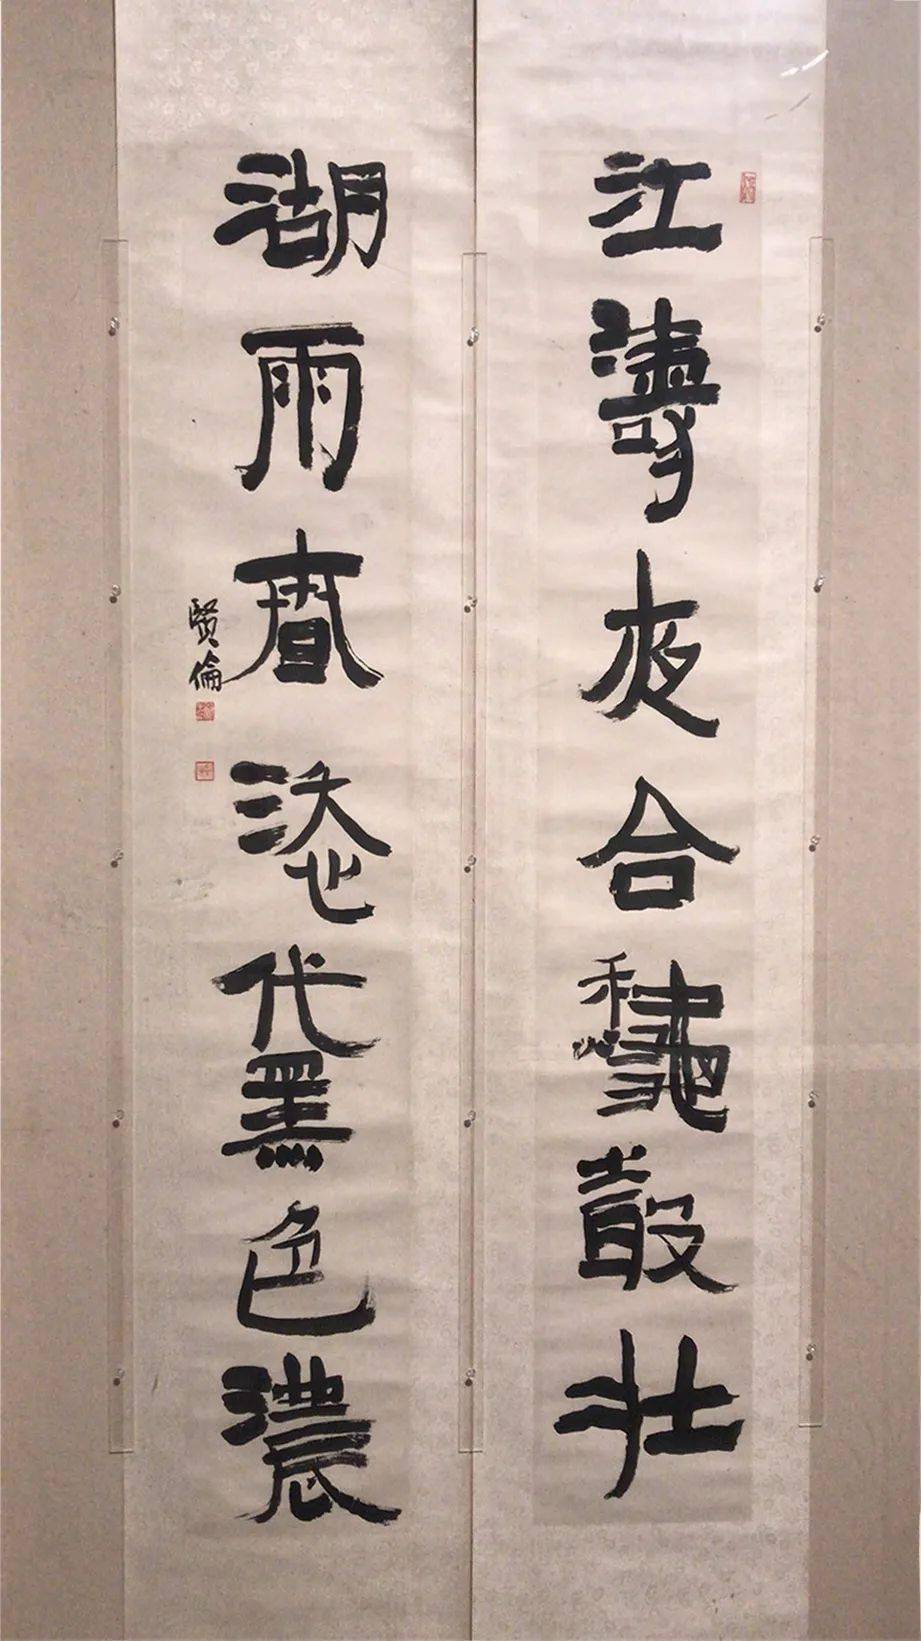 江濤夜合龝聲壯
湖雨春添黛色濃
賢倫